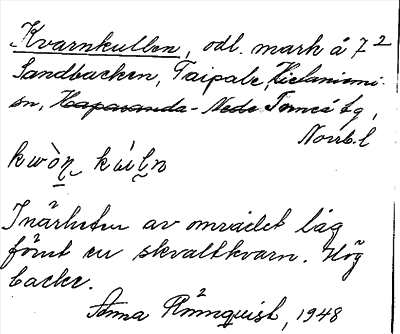 Kvarnkullen, odl. mark å 7²
Sandbacken, Taipale, Kielaniemi-
en, Haparanda - Nede Torneå tg,
Norrb.l
kwò̱n kúiln
I närheten av området låg
förut en skvaltkvarn. Hög
backe.
Anna Rönnquist, 1948